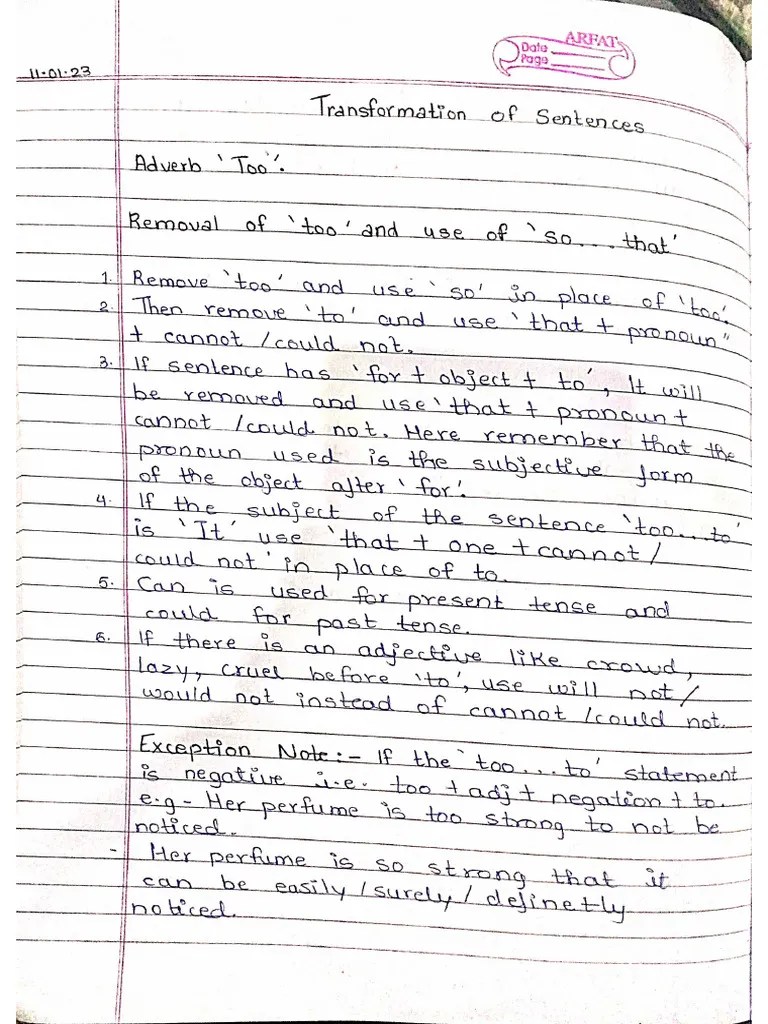 ARFAT
Date
Page
11.01.23
Transformation of Sentences
Adverb 'Too'.
Removal of 'too' and use of 'so....that'
1. Remove 'too' and use 'so' in place of 'too'.
2. Then remove 'to' and use 'that + pronoun"
+ cannot /could not.
3. If sentence has 'for + object + to', It will
be removed and use 'that + pronoun +
cannot /could not. Here remember that the
pronoun used is the subjective form
of the object after 'for'.
4. If the subject of the sentence 'too...to'
is 'It' use 'that + one + cannot /
could not' in place of to.
5. Can is used for present tense and
could for past tense.
6. If there is an adjective like crowd,
lazy, cruel before 'to', use will not/
would not instead of cannot /could not.
Exception Note:- If the 'too...to' statement
is negative i.e. too + adj + negation + to.
e.g - Her perfume is too strong to not be
noticed.
- Her perfume is so strong that it
can be easily /surely / definetly
noticed.